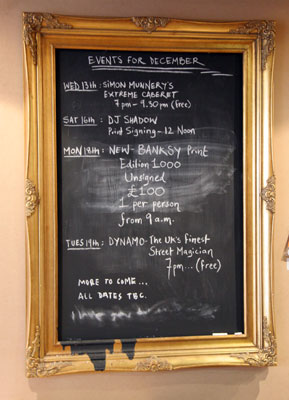 EVENTS FOR DECEMBER
WED 13th: SIMON MUNNERY'S
EXTREME CABERET
7pm - 9.30pm (free)
SAT 16th: DJ SHADOW
Print Signing - 12 Noon
MON 18th: NEW BANKSY Print
Edition 1000
Unsigned
£100
1 per person
from 9 a.m.
TUES 19th: DYNAMO - The UK's finest
Street Magician
7pm... (free)
MORE TO COME...
ALL DATES TBC.